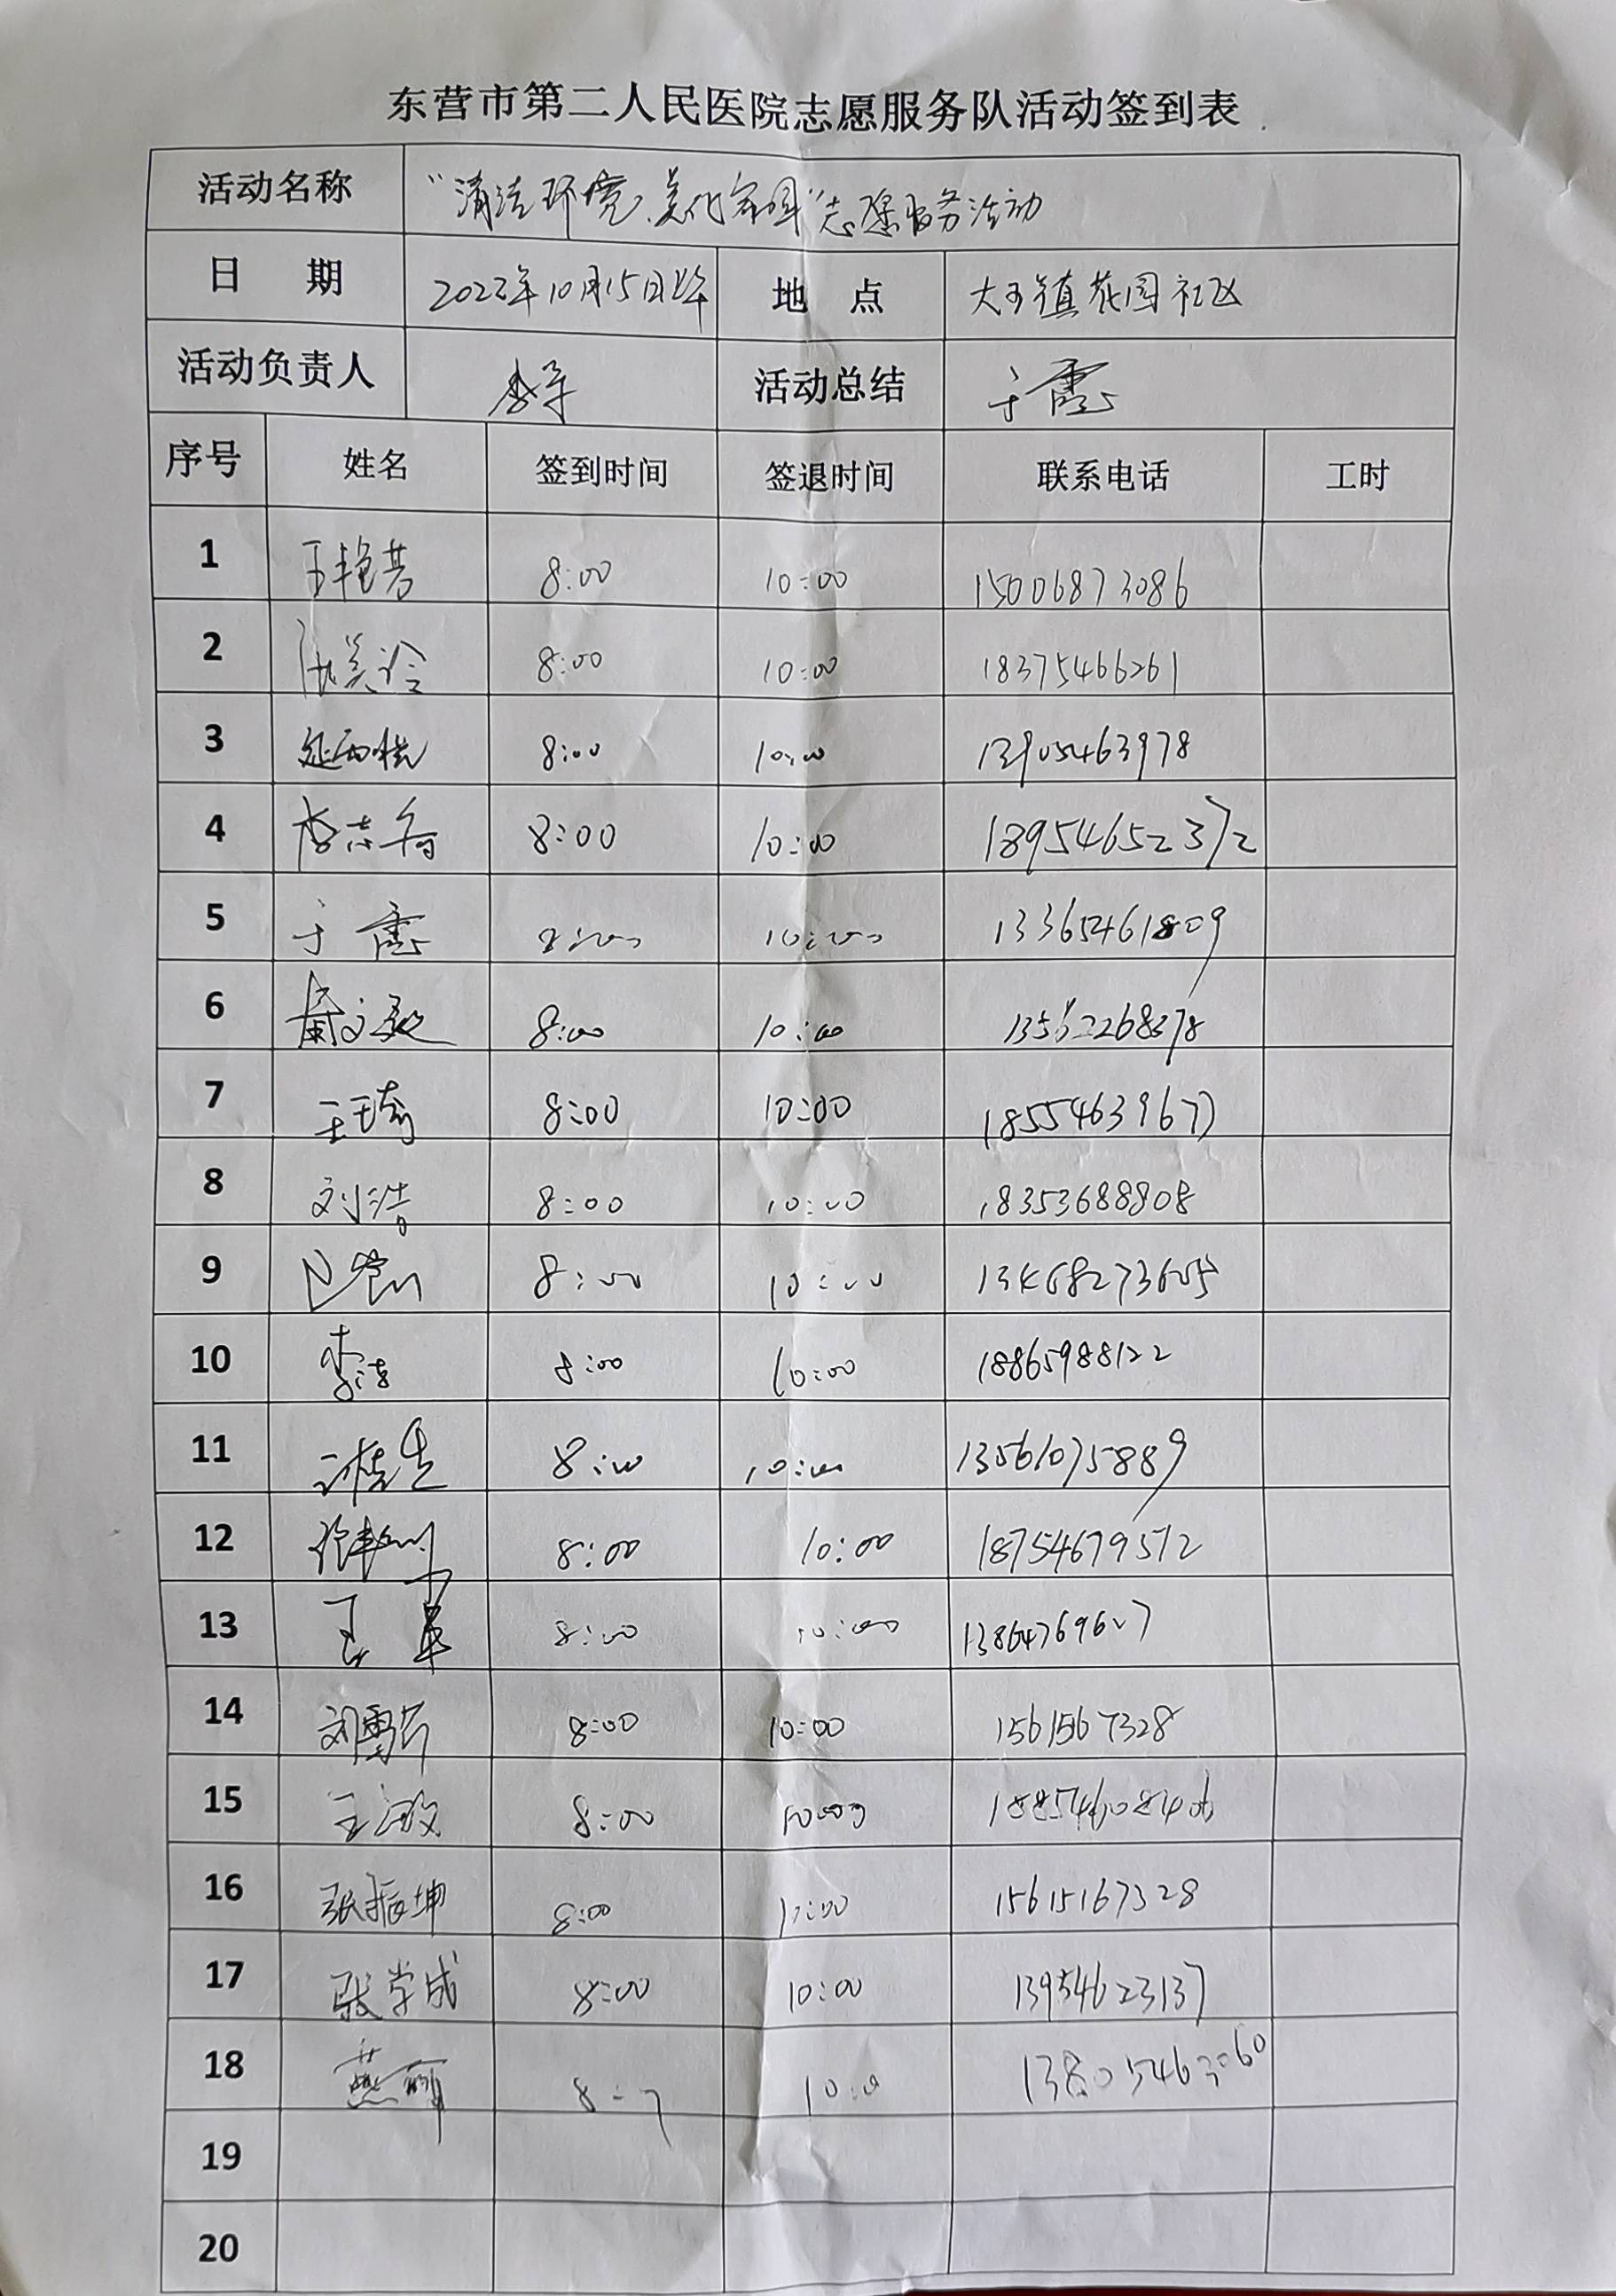 东营市第二人民医院志愿服务队活动签到表
活动名称 "清洁环境、美化家园"志愿服务活动
日 期 2022年10月15日上午 地 点 大王镇花园社区
活动负责人 活动总结 于霞
序号 姓名 签到时间 签退时间 联系电话 工时
1 王艳芳 8:00 10:00 15006873086
2 8:00 10:00 18375466261
3 8:00 10:00 13905463978
4 8:00 10:00 18954652372
5 于霞 8:00 10:00 13365461809
6 8:00 10:00 13562268378
7 王琦 8:00 10:00 18554639677
8 刘浩 8:00 10:00 18353688908
9 8:00 10:00
10 李洁 8:00 10:00 18865988122
11 8:00 10:00 13561075889
12 8:00 10:00 18754679512
13 8:00 10:00 13864769607
14 8:00 10:00 15615167328
15 王汝 8:00 10:00
16 张振坤 8:00 10:00 15615167328
17 张学成 8:00 10:00 13954623137
18 燕丽 10:0 13805463060
19
20